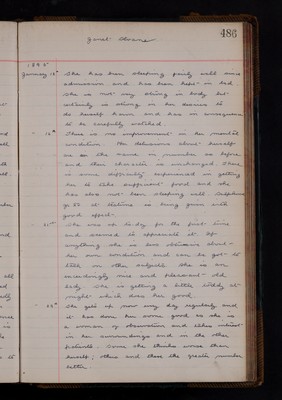 486
Janet
1895
January 13 She has been sleeping fairly well since
admission and has been kept in bed
She is not very strong in body but
is strong in her desires to
do herself harm and has in consequence
to be carefully watched.
" 16th There is no improvement in her mental
condition. Her delusions about herself
are the same in number as before
and their character is unchanged. There
is some difficulty experienced in getting
her to take sufficient food and she
has also not been sleeping well. Sulphonal
is being given with
good effect.
" She was up to-day for the first time
and seemed to appreciate it. If
anything she is less about
her own condition and can be got to
talk on other subjects. She is an
exceedingly nice and pleasant old
body. She is getting a bitter
might which does her good
" She gets up now every day regularly and
it has done her some good as she is
a woman of observation and takes interest
in her surroundings and in the other
patients. Some she thinks worse than
herself; others and these the greater number
better.